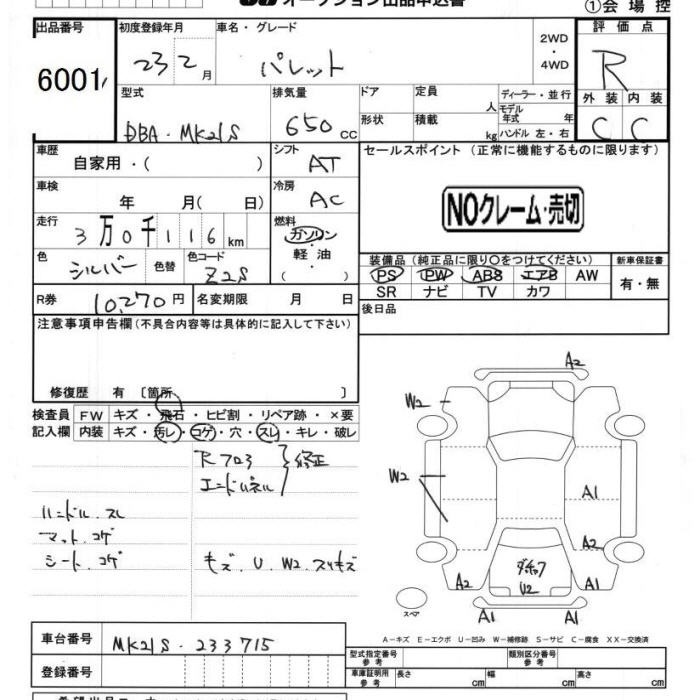 オークション出品申込書 ①会場控
出品番号 初度登録年月 車名・グレード 2WD・4WD 評価点
6001 23 2月 パレット R
型式 排気量 ドア 定員 人 ディーラー・並行 外装 内装
DBA・MK21S 650cc 形状 積載 kg モデル年式 年 ハンドル 左・右 C C
車歴 自家用・( ) シフト AT セールスポイント (正常に機能するものに限ります)
車検 年 月( 日) 冷房 AC NOクレーム・売切
走行 3万0千116km 燃料 ガソリン・軽油・( )
色 シルバー 色替 色コード Z2S 装備品 (純正品に限り○をつけてください) 新車保証書
PS PW ABS エアB AW 有・無
SR ナビ TV カワ
R券 10,270円 名変期限 月 日 後日品
注意事項申告欄 (不具合内容等は具体的に記入して下さい)
修復歴 有 〔箇所 〕
検査員 FW キズ・飛石・ヒビ割・リペア跡・×要
記入欄 内装 キズ・汚レ・コゲ・穴・スレ・キレ・破レ
Rフロア 修正
エンドパネル
ハンドル.スレ
マット.コゲ
シート.コゲ キズ.U.W2.スリキズ
A2
W2
W2
A1
A2
A2 U2 A1
A1 A1
スペア
A－キズ E－エクボ U－凹み W－補修跡 S－サビ C－腐食 XX－交換済
車台番号 MK21S-233715 型式指定番号 参考 類別区分番号 参考
登録番号 車庫証明用 参考 長さ cm 幅 cm 高さ cm